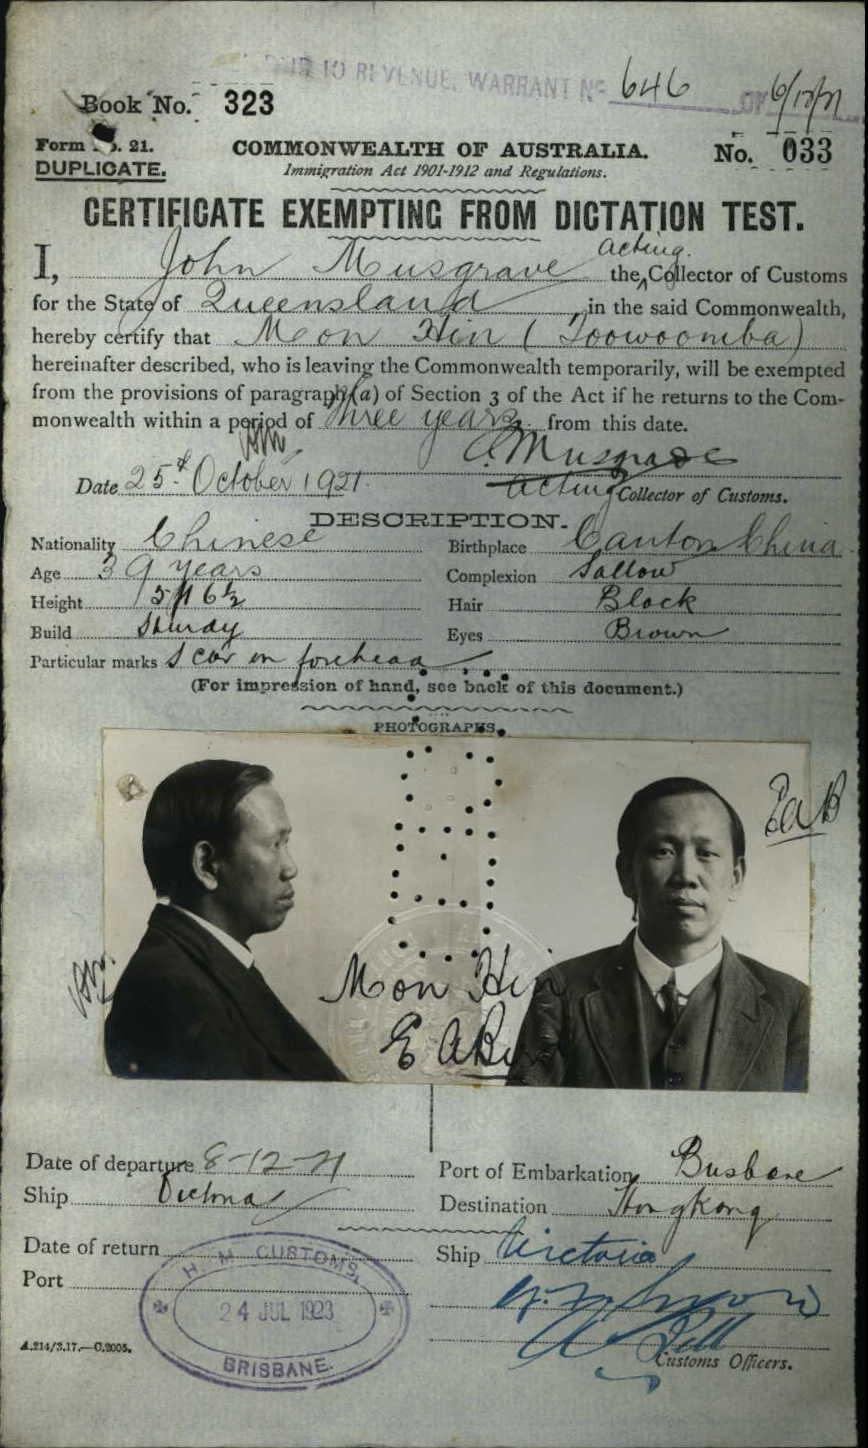 REVENUE, WARRANT No 646 OF 6/12/21
Book No. 323
Form No. 21.
DUPLICATE.
COMMONWEALTH OF AUSTRALIA.
No. 033
Immigration Act 1901-1912 and Regulations.
CERTIFICATE EXEMPTING FROM DICTATION TEST.
I, John Musgrave the Acting Collector of Customs
for the State of Queensland in the said Commonwealth,
hereby certify that Mon Hin (Toowoomba)
hereinafter described, who is leaving the Commonwealth temporarily, will be exempted
from the provisions of paragraph (a) of Section 3 of the Act if he returns to the Com-
monwealth within a period of three years from this date.
Musgrave
Date 25th October 1921. Acting Collector of Customs.
DESCRIPTION.
Nationality Chinese Birthplace Canton China
Age 39 years Complexion Sallow
Height 5ft 6½ Hair Black
Build Sturdy Eyes Brown
Particular marks Scar on forehead
(For impression of hand, see back of this document.)
PHOTOGRAPHS.
Mon Hin
Date of departure 8-12-21 Port of Embarkation Brisbane
Ship Victoria Destination Hongkong
Date of return Ship Victoria
Port
H. M. CUSTOMS.
24 JUL 1923
BRISBANE.
A.214/3.17.—C.2005.
Customs Officers.